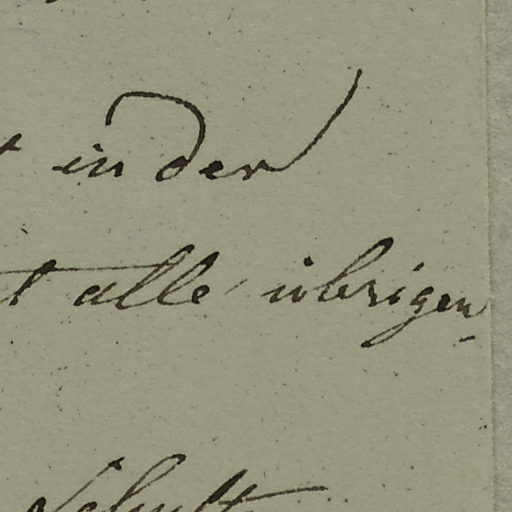 in der
t alle übrigen